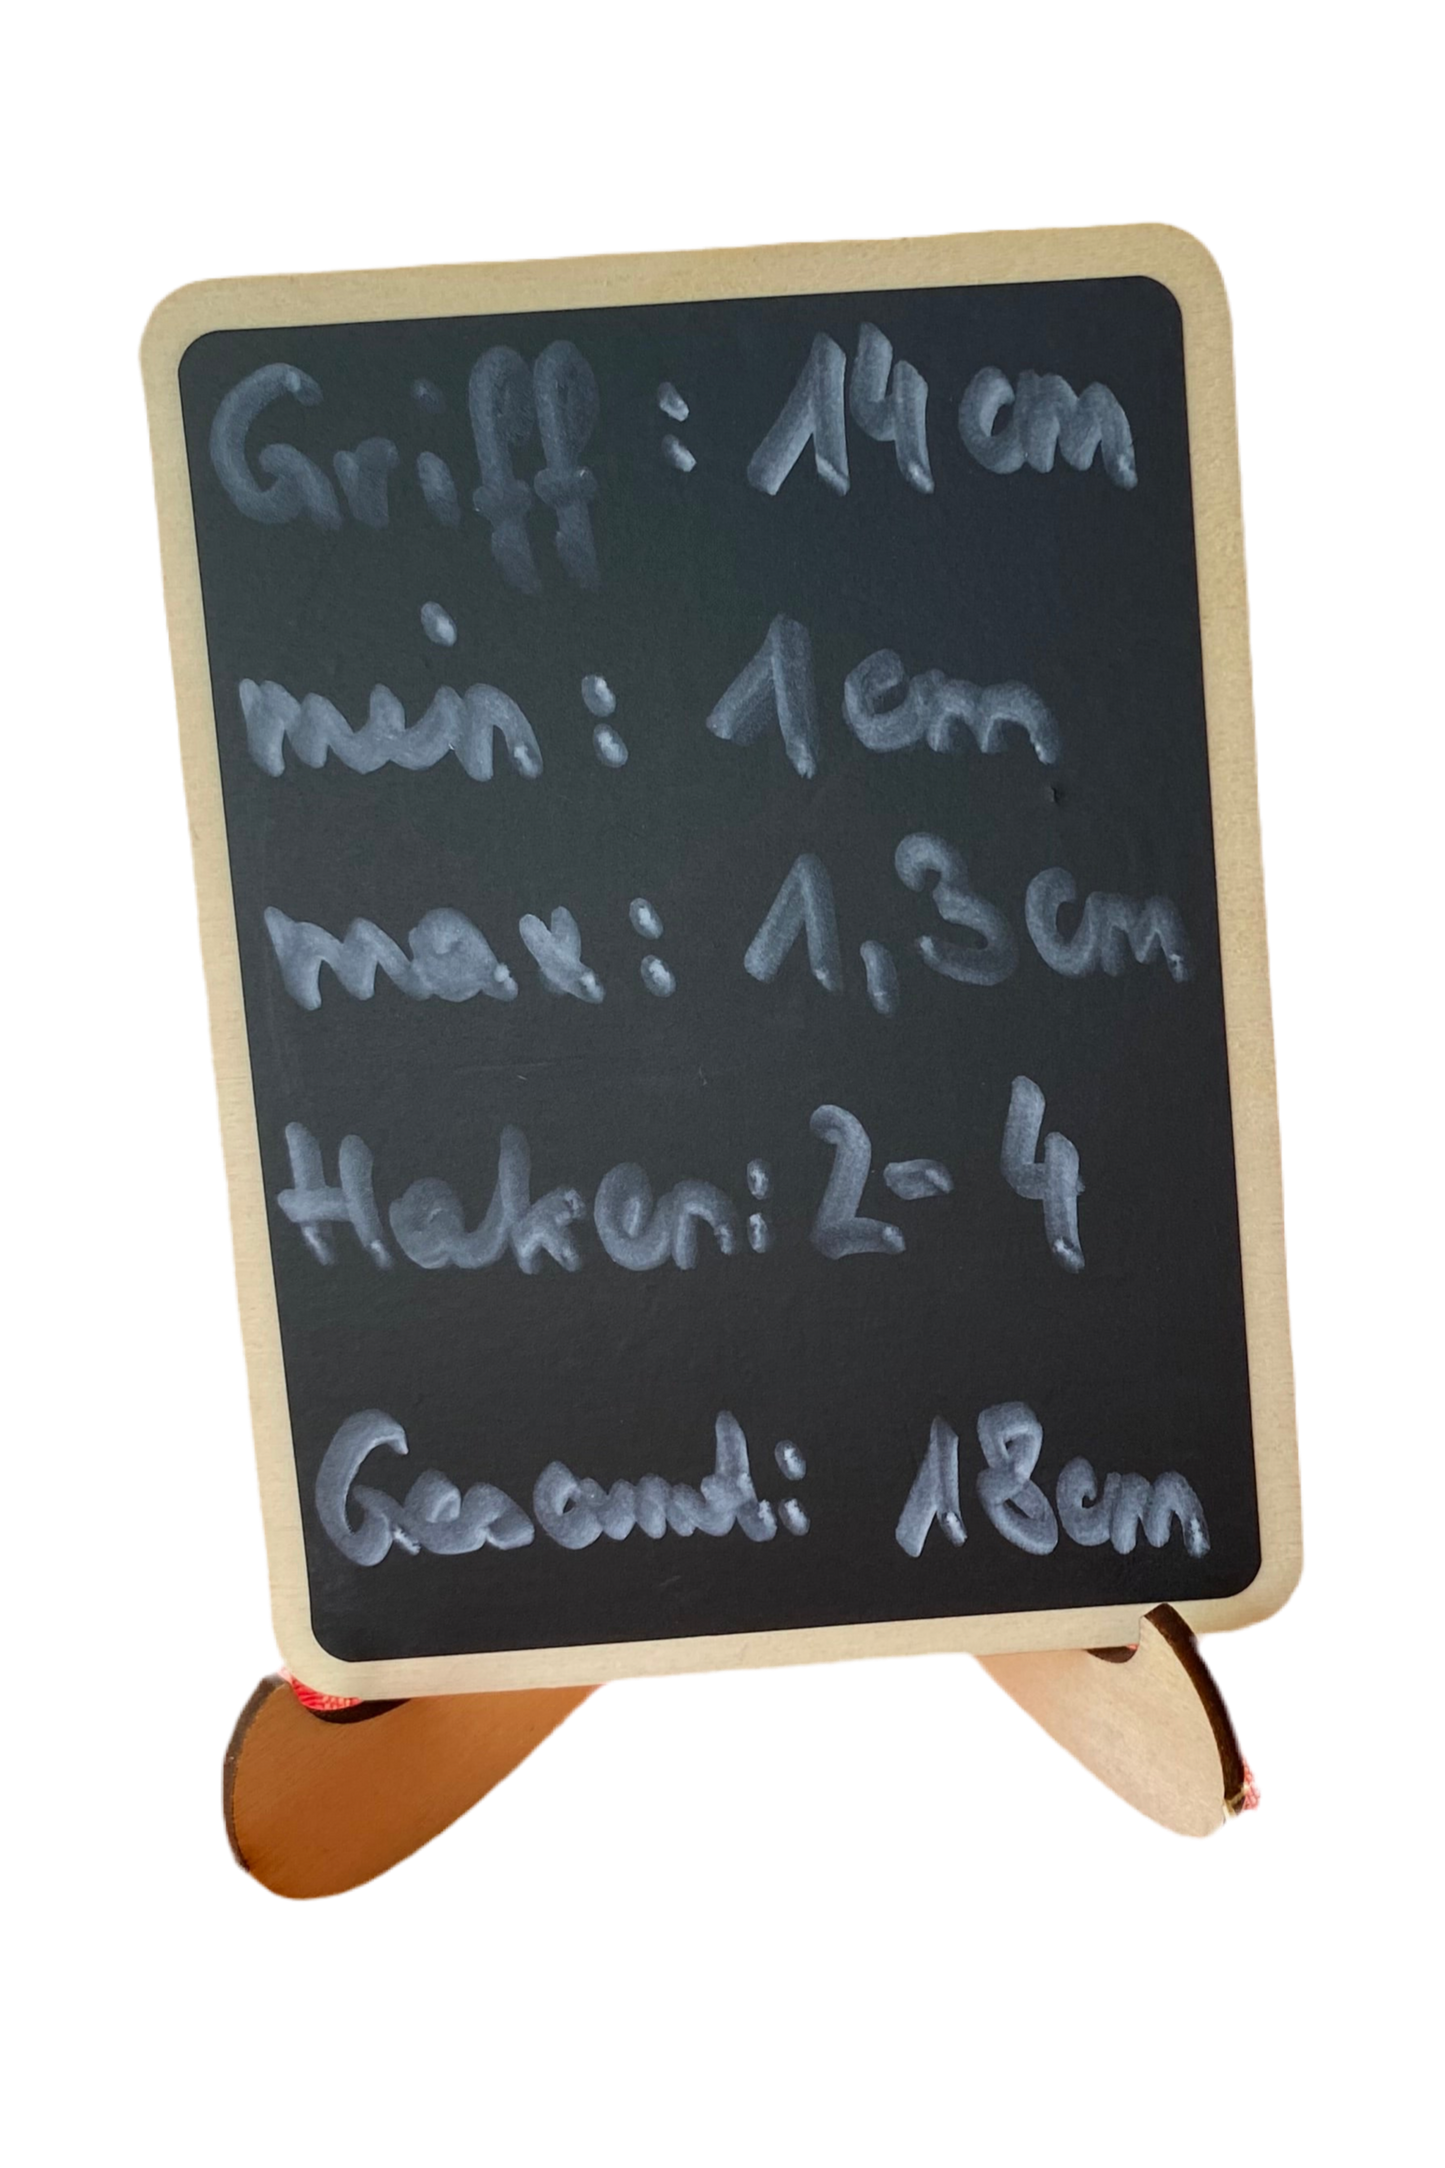 Griff: 14cm
min: 1cm
max: 1,3cm
Haken: 2-4
Gesamt: 18cm